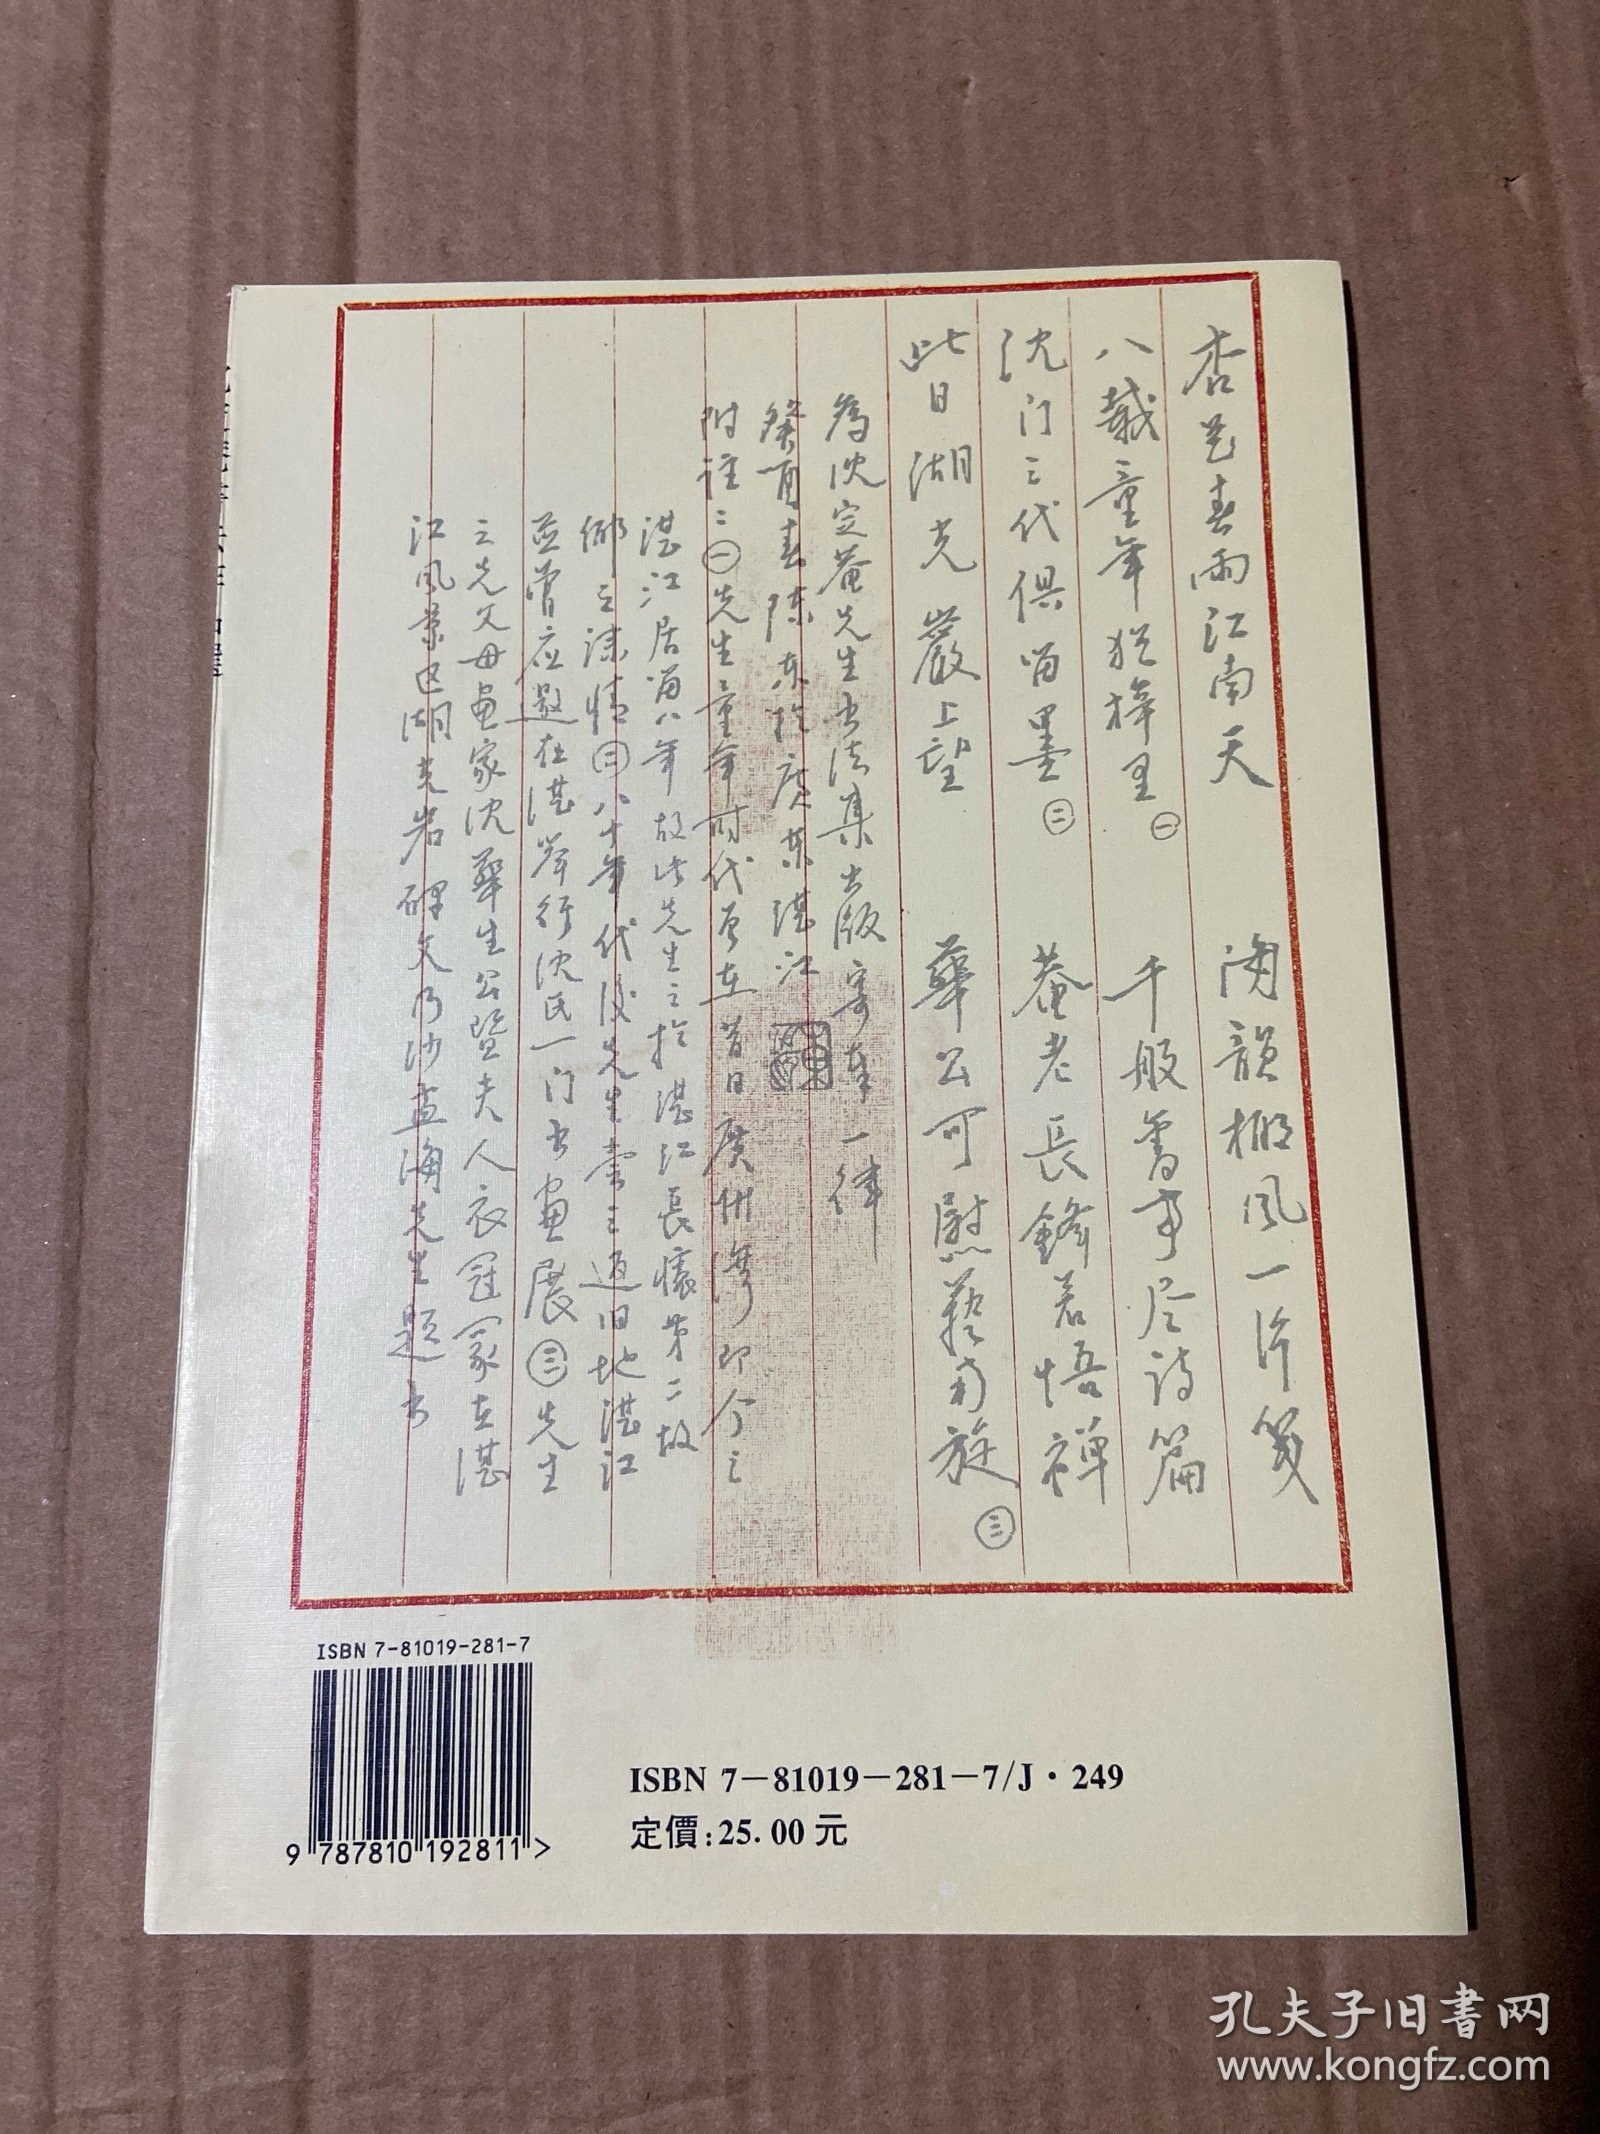 杏花春雨江南天 海韻椰风一片笺
八載童年犹梓里㊀ 千般旧事尽诗篇
沈门三代俱留墨㊁ 菴老長鋒若悟禅
此日湖光巖上望 華公可慰藝有旋㊂
為沈定菴先生书法集出版寄奉一律
癸酉春陈东於廣東湛江
附註：㊀先生童年时代曾在昔日廣州湾即今之
湛江居留八年故此先生之於湛江長懷第二故
鄉之谏情㊁八十年代后先生尝三返旧地湛江
並曾应邀在湛举行沈氏一门书画展㊂先生
之先父母画家沈華生公暨夫人衣冠冢在湛
江风景区湖光岩碑文乃沙孟海先生题书
ISBN 7-81019-281-7
9 787810 192811 >
ISBN 7-81019-281-7/J·249
定價:25.00元
孔夫子旧书网
www.kongfz.com